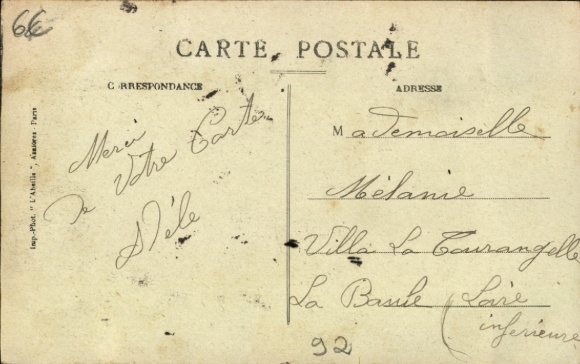 66
CARTE POSTALE
CORRESPONDANCE
ADRESSE
Imp.-Phot. "L'Abeille", Asnières-Paris
Merci
de Votre Carte
Mademoiselle
Mélanie
Villa La Tourangelle
La Baule (Loire
inferieure
92